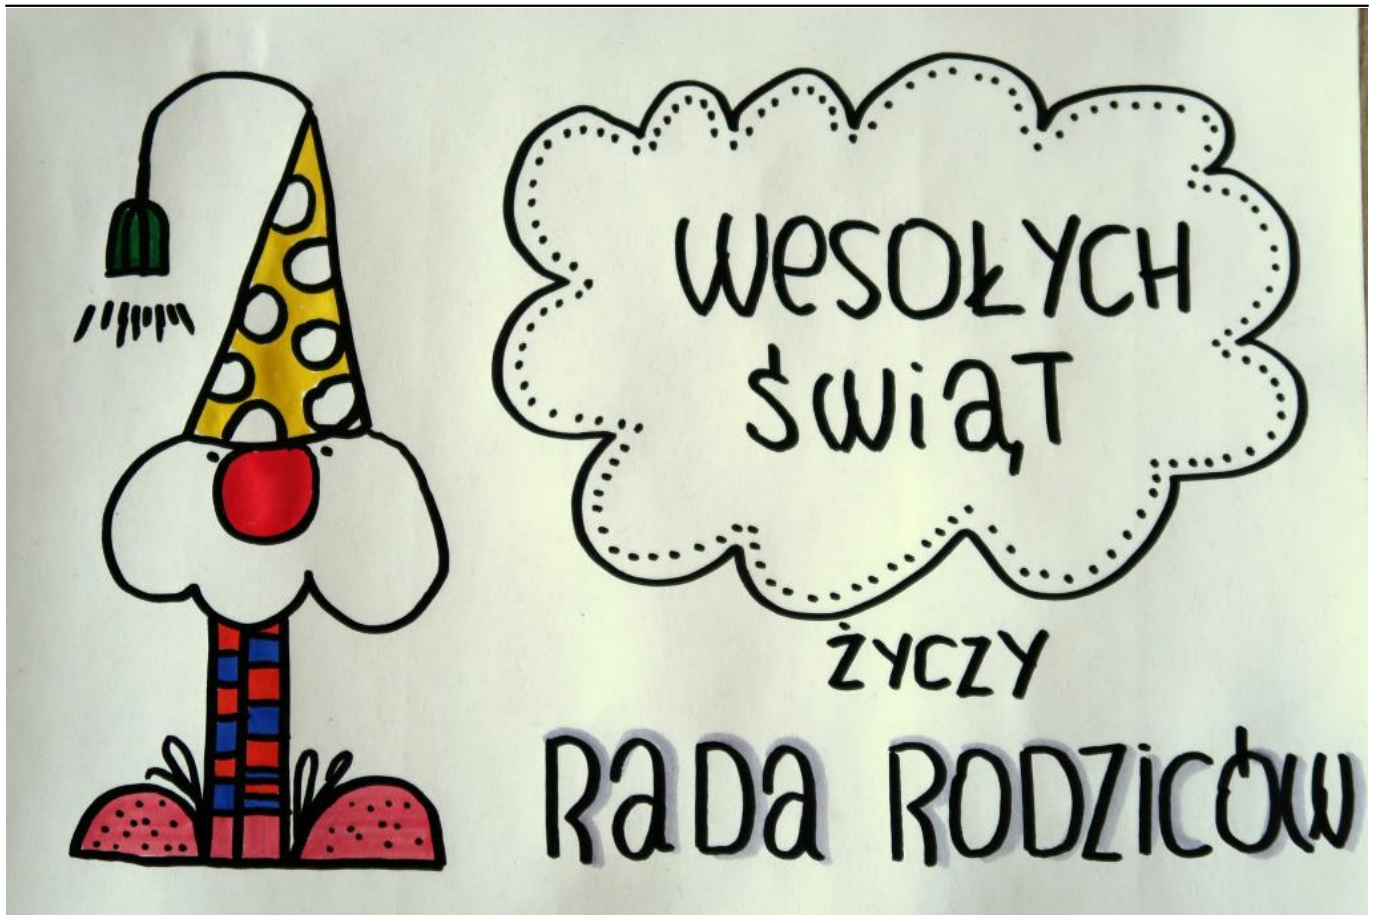 WESOŁYCH
ŚWIĄT
ŻYCZY
RADA RODZICÓW